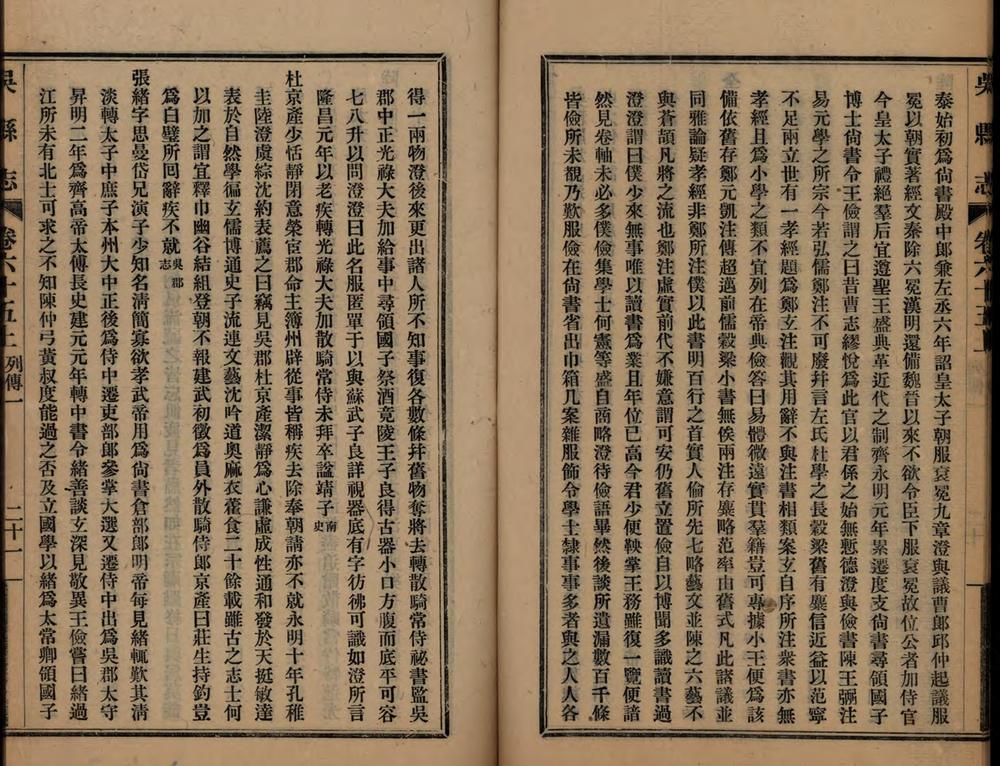 吳縣志 卷六十五上
泰始初爲尙書殿中郎兼左丞六年詔皇太子朝服袞冕九章澄與議曹郎邱仲起議服
冕以朝實著經文秦除六冕漢明還備魏晉以來不欲令臣下服袞冕故位公者加侍官
今皇太子禮絶羣后宜遵聖王盛典革近代之制齊永明元年累遷度支尙書尋領國子
博士尙書令王儉謂之曰昔曹志繆悅爲此官以君係之始無慙德澄與儉書陳王弼注
易元學之所宗今若弘儒鄭注不可廢幷言左氏杜學之長穀梁舊有麋信近益以范寧
不足兩立世有一孝經題爲鄭玄注觀其用辭不與注書相類案玄自序所注衆書亦無
孝經且爲小學之類不宜列在帝典儉答曰易體微遠實貫羣籍豈可專據小王便爲該
備依舊存鄭元凱注傳超邁前儒穀梁小書無俟兩注存麋略范率由舊式凡此諸議並
同雅論疑孝經非鄭所注僕以此書明百行之首實人倫所先七略藝文並陳之六藝不
與蒼頡凡將之流也鄭注虛實前代不嫌意謂可安仍舊立置儉自以博聞多識讀書過
澄澄謂曰僕少來無事唯以讀書爲業且年位已高今君少便鞅掌王務雖復一覽便諳
然見卷軸未必多僕儉集學士何憲等盛自商略澄待儉語畢然後談所遺漏數百千條
皆儉所未覩乃歎服儉在尙書省出巾箱几案雜服飾令學士隸事事多者與之人人各
得一兩物澄後來更出諸人所不知事復各數條幷舊物奪將去轉散騎常侍祕書監吳
郡中正光祿大夫加給事中尋領國子祭酒竟陵王子良得古器小口方腹而底平可容
七八升以問澄澄曰此名服匿單于以與蘇武子良詳視器底有字彷彿可識如澄所言
隆昌元年以老疾轉光祿大夫加散騎常侍未拜卒諡靖子南史
杜京產少恬靜閉意榮宦郡命主簿州辟從事皆稱疾去除奉朝請亦不就永明十年孔稚
圭陸澄虞綜沈約表薦之曰竊見吳郡杜京產潔靜爲心謙虛成性通和發於天挺敏達
表於自然學徧玄儒博通史子流連文藝沈吟道奧麻衣藿食二十餘載雖古之志士何
以加之謂宜釋巾幽谷結組登朝不報建武初徵爲員外散騎侍郎京產曰莊生持釣豈
爲白璧所回辭疾不就吳郡志
張緒字思曼岱兄演子少知名淸簡寡欲孝武帝用爲尙書倉部郎明帝每見緒輒歎其淸
淡轉太子中庶子本州大中正後爲侍中遷吏部郎參掌大選又遷侍中出爲吳郡太守
昇明二年爲齊高帝太傅長史建元元年轉中書令緒善談玄深見敬異王儉嘗曰緒過
江所未有北士可求之不知陳仲弓黃叔度能過之否及立國學以緒爲太常卿領國子
吳縣志 卷六十五上 列傳一 二十一